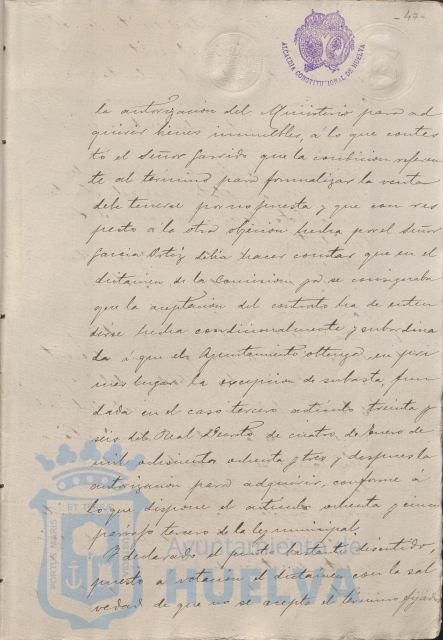 - 47 -
ALCALDIA CONSTITUCIONAL DE HUELVA
la autorización del Ministerio para ad
quirir bienes inmuebles, a lo que contes
tó el Señor Garrido que la condicion referen
te al término para formalizar la venta
debe tenerse por no puesta y que con res
pecto a la otra objecion hecha por el Señor
Garcia Ortiz debia hacer constar que en el
dictamen de la Comision ya se consignaba
que la aceptacion del contrato ha de enten
derse hecha condicionalmente y subordina
da á que el Ayuntamiento obtenga, en pri
mer lugar la excepcion de subasta, fun
dada en el caso tercero artículo treinta y
seis del Real Decreto de cuatro de Enero de
mil ochocientos ochenta y tres y despues la
autorizacion para adquirir, conforme á
lo que dispone el artículo ochenta y cinco
párrafo tercero de la ley municipal.
Y declarado el punto bastante discutido,
puesto a votacion el dictamen con la sal
vedad de que no se acepta el término fijado
PORTUS MARIS ET
Ayuntamiento de
HUELVA